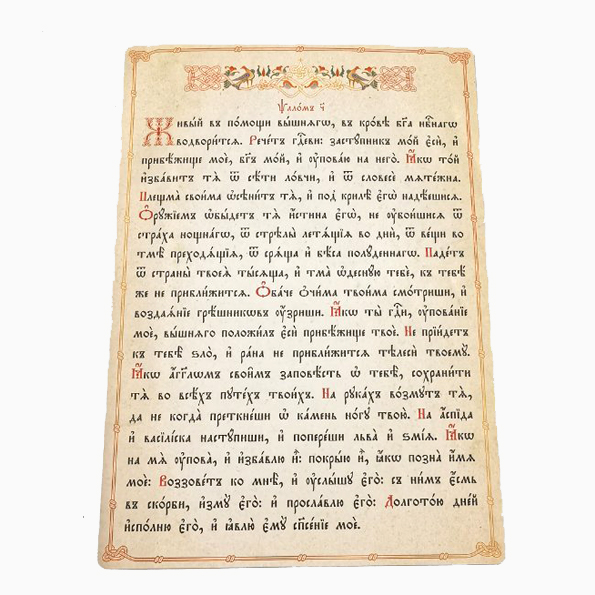 Ѱало́мъ ч҃
Живы́й въ по́мощи вы́шнягѡ, въ кро́вѣ бг҃а нбⷭ҇нагѡ
водвори́тсѧ. Рече́тъ гдⷭ҇еви: застꙋ́пникъ мо́й є҆сѝ, и҆
прибѣ́жище моѐ, бг҃ъ мо́й, и҆ ᲂу҆пова́ю на него̀. Ꙗ҆́кѡ то́й
и҆зба́витъ тѧ̀ ѿ сѣ́ти ло́вчи, и҆ ѿ словесѐ мѧте́жна.
Плещма̀ свои́ма ѡ҆сѣни́тъ тѧ̀, и҆ под̾ крилѣ̑ є҆гѡ̀ надѣ́ешисѧ.
Ѻ҆рꙋ́жїемъ ѡ҆бы́детъ тѧ̀ и҆́стина є҆гѡ̀, не ᲂу҆бои́шисѧ ѿ
стра́ха нощна́гѡ, ѿ стрѣлы̀ летѧ́щїѧ во днѝ, ѿ ве́щи во
тмѣ̀ преходѧ́щїѧ, ѿ срѧ́ща и҆ бѣ́са полꙋ́деннагѡ. Паде́тъ
ѿ страны̀ твоеѧ̀ ты́сѧща, и҆ тма̀ ѡ҆деснꙋ́ю тебє̀, къ тебѣ́
же не прибли́житсѧ. Ѻ҆ба́че ѻ҆чи́ма твои́ма смо́триши, и҆
воздаѧ́нїе грѣ́шникѡвъ ᲂу҆́зриши. Ꙗ҆́кѡ ты̀ гдⷭ҇и, ᲂу҆пова́нїе
моѐ, вы́шнѧго положи́лъ є҆сѝ прибѣ́жище твоѐ. Не прїи́детъ
къ тебѣ̀ ѕло̀, и҆ ра́на не прибли́житсѧ тѣлесѝ твоемꙋ̀.
Ꙗ҆́кѡ а҆́гг҃лѡмъ свои̑мъ заповѣ́сть ѡ҆ тебѣ̀, сохрани́ти
тѧ̀ во всѣ́хъ пꙋте́хъ твои́хъ. На рꙋка́хъ во́змꙋтъ тѧ̀,
да не когда̀ преткне́ши ѡ҆ ка́мень но́гꙋ твою̀. На а҆́спїда
и҆ васїлі́ска настꙋ́пиши, и҆ попере́ши льва̀ и҆ ѕмі́ѧ. Ꙗ҆́кѡ
на мѧ̀ ᲂу҆пова̀, и҆ и҆зба́влю и҆̀: покры́ю и҆̀, ꙗ҆́кѡ позна̀ и҆́мѧ
моѐ: Воззове́тъ ко мнѣ̀, и҆ ᲂу҆слы́шꙋ є҆го̀: съ ни́мъ є҆́смь
въ ско́рби, и҆змꙋ̀ є҆го̀: и҆ просла́влю є҆го̀: Долгото́ю дні́й
и҆спо́лню є҆го̀, и҆ ꙗ҆влю̀ є҆мꙋ̀ сп҃се́нїе моѐ.